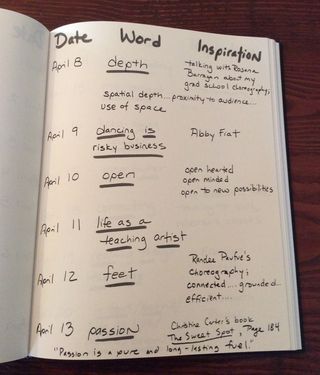 Date Word Inspiration
April 8 depth talking with Rosana
Barragan about my
grad school choreography;
spatial depth... proximity to audience...
use of space
April 9 dancing is Abby Fiat
risky business
April 10 open open hearted
open minded
open to new possibilities
April 11 life as a
teaching artist
April 12 feet Randee Paufve's
choreography;
connected.... grounded...
efficient....
April 13 passion Christine Carter's book
The Sweet Spot, Page 184
"Passion is a pure and long-lasting fuel."